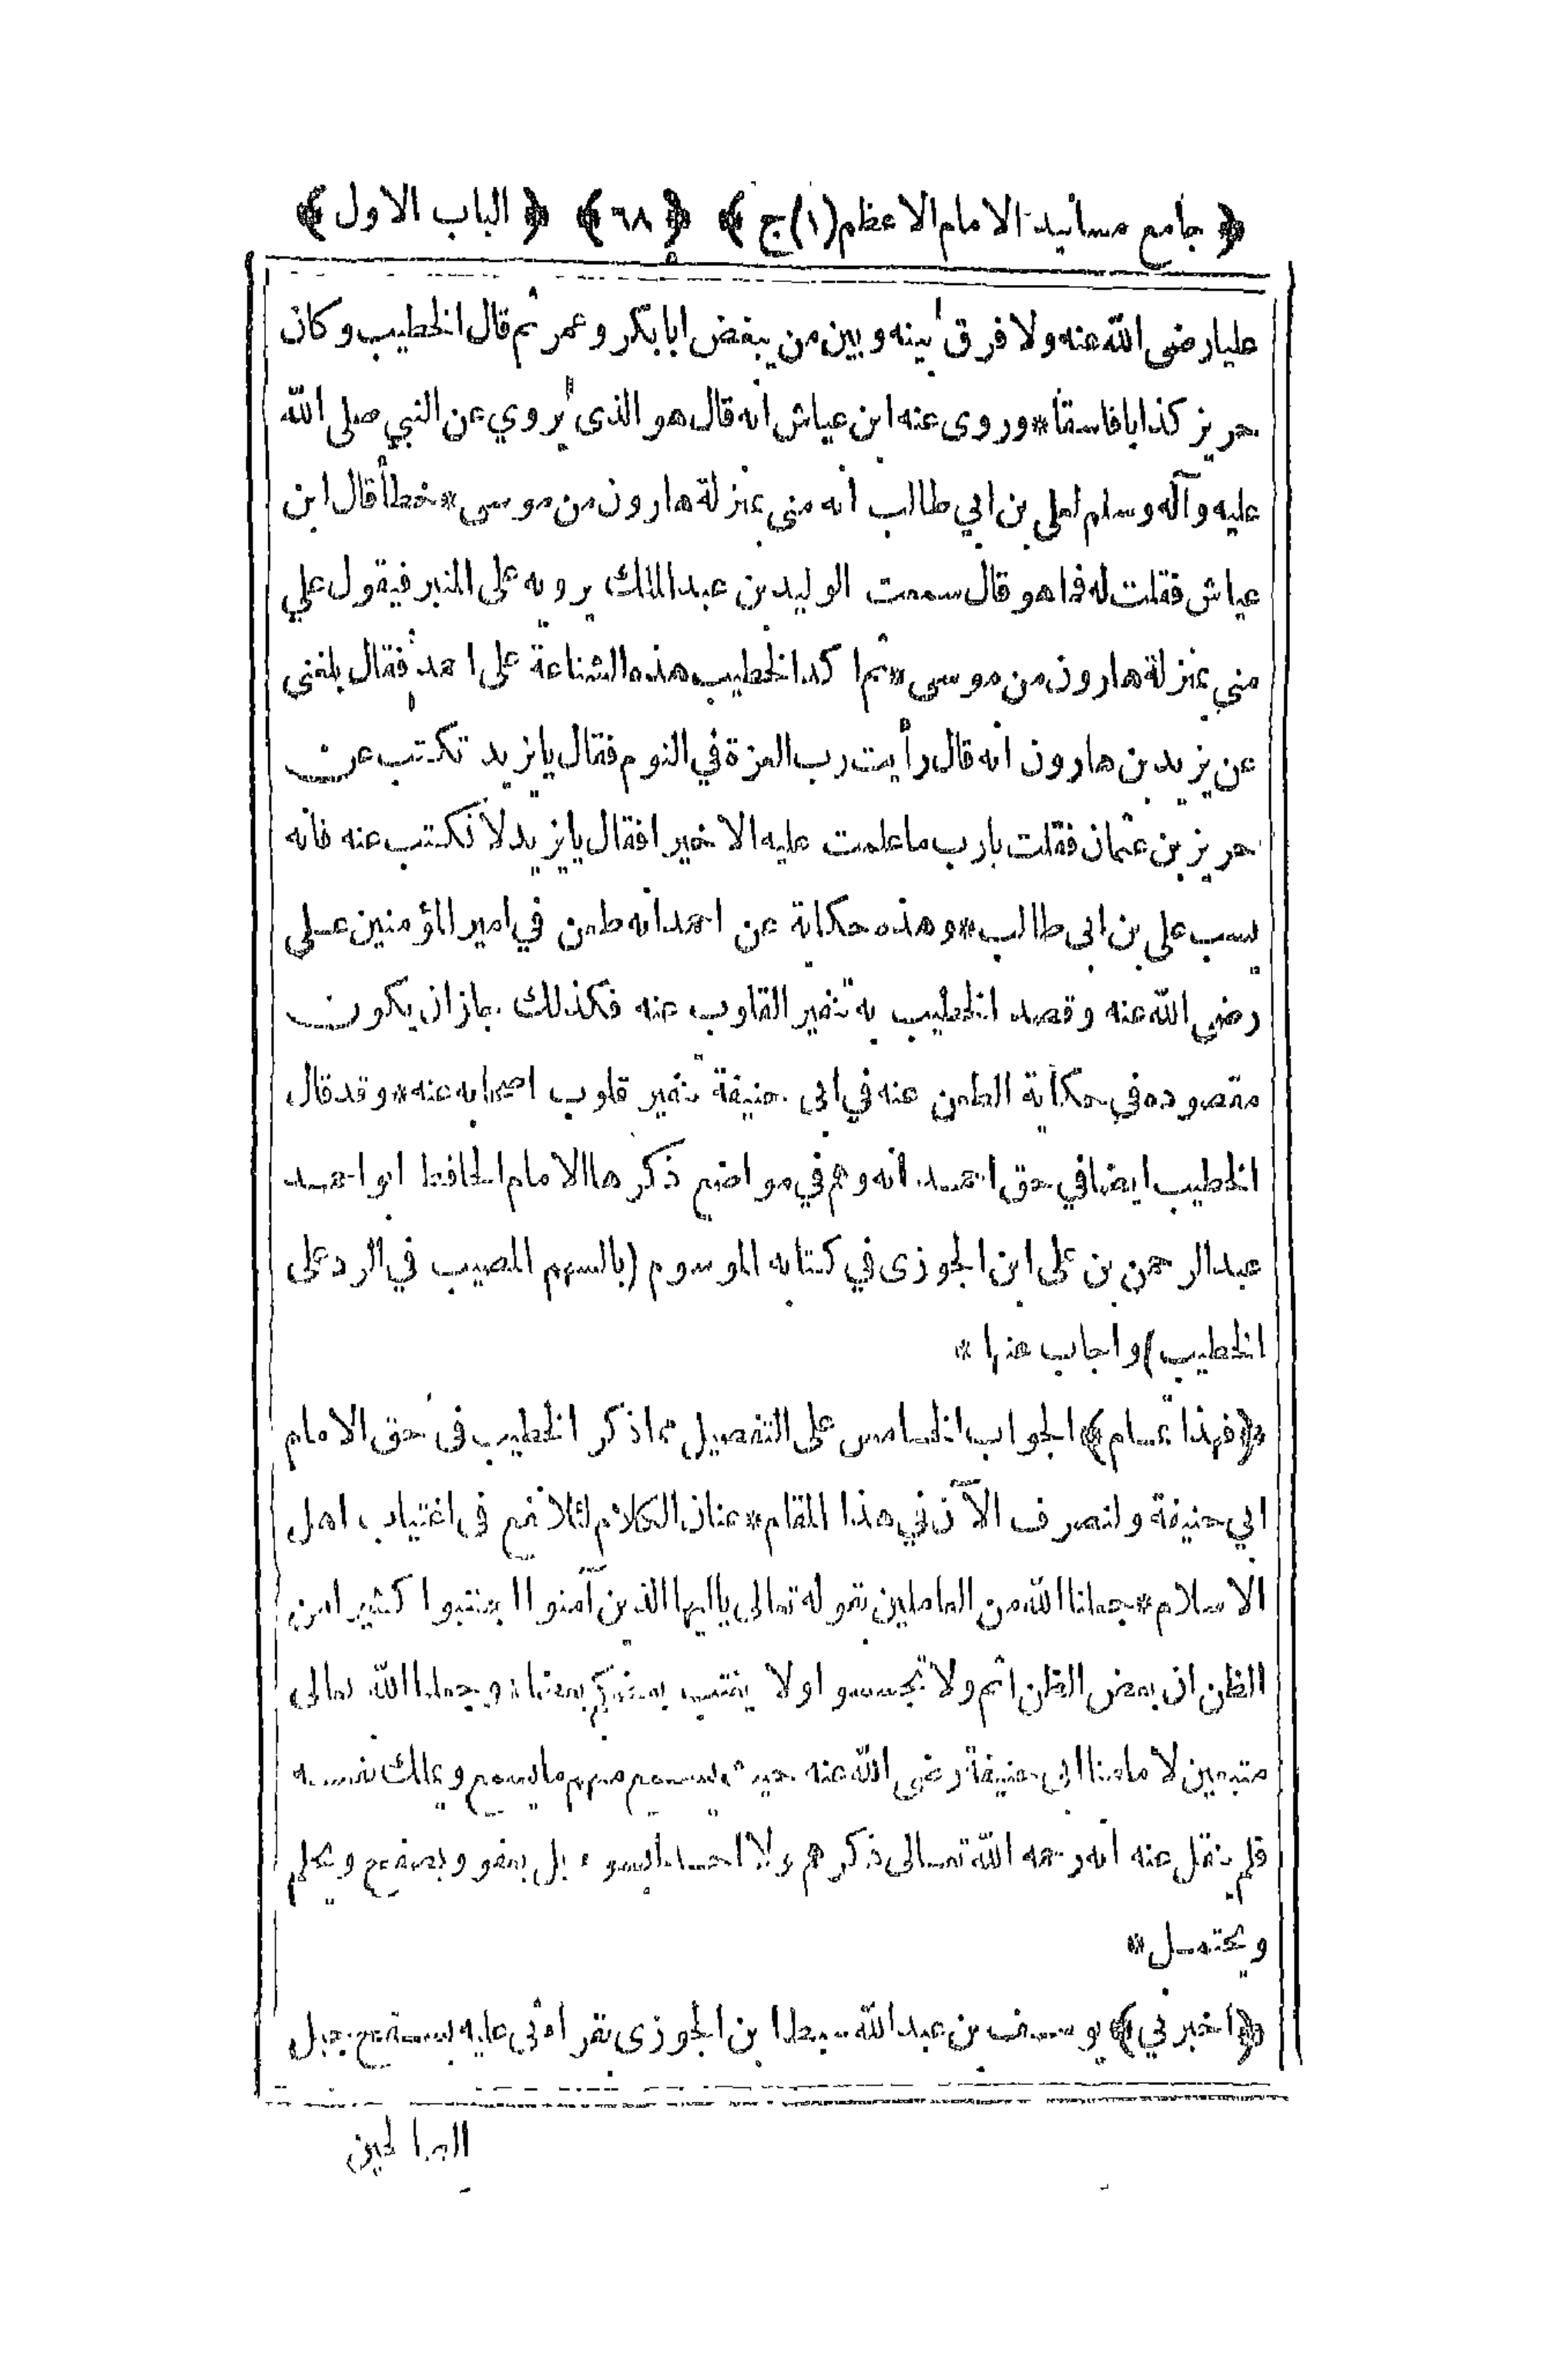 ﴿ جامع مسانيد الامام الاعظم (١) ج ﴾ ﴿ ٦٨ ﴾ ﴿ الباب الاول ﴾
عليا رضى الله عنه ولا فرق بينه وبين من يبغض ابا بكر وعمر ثم قال الخطيب وكان
حريز كذابا فاسقا * وروى عنه ابن عياش انه قال هو الذى يروي عن النبي صلى الله
عليه وآله وسلم لعلي بن ابي طالب انه مني بمنزلة هارون من موسى * خطأ قال ابن
عياش فقلت له فما هو قال سمعت الوليد بن عبد الملك يرويه على المنبر فيقول علي
مني بمنزلة هارون من موسى * ثم اكد الخطيب هذه الشناعة على احمد فقال بلغنى
عن يزيد بن هارون انه قال رأيت رب العزة في النوم فقال يا يزيد تكتب عن
حريز بن عثمان فقلت يا رب ما علمت عليه الا خيرا فقال يا يزيد لا تكتب عنه فانه
يسب علي بن ابى طالب * وهذه حكاية عن احمد انه طعن في امير المؤمنين عـلى
رضى الله عنه وقصد الخطيب به تنفير القلوب عنه فكذلك جاز ان يكون
مقصوده في حكاية الطعن عنه في ابى حنيفة تنفير قلوب اصحابه عنه * وقد قال
الخطيب ايضا في حق احمد انه وهم في مواضع ذكرها الامام الحافظ ابو احمد
عبد الرحمن بن على ابن الجوزى في كتابه الموسوم (بالسهم المصيب في الرد على
الخطيب) واجاب عنها *
﴿ فهذا تمام ﴾ الجواب الخامس على التفصيل مما ذكر الخطيب فى حق الامام
ابي حنيفة ولنصرف الآن في هذا المقام * عنان الكلام لئلا نقع فى اغتياب اهل
الاسلام * جعلنا الله من العاملين بقوله تعالى يا ايها الذين آمنوا اجتنبوا كثيرا من
الظن ان بعض الظن اثم ولا تجسسوا ولا يغتب بعضكم بعضا * وجعلنا الله تعالى
متبعين لامامنا ابى حنيفة رضى الله عنه حيث يسمع منهم ما يسمع ويملك نفسـه
فلم ينقل عنه انه رحمه الله تعـالى ذكرهم ولا احدا بالسوء بل يعفو ويصفح ويحلم
ويحتمـل *
﴿ اخبرني ﴾ يوسـف بن عبد الله سبط ابن الجوزى بقراءتى عليه بسـفح جبل
الصالحين